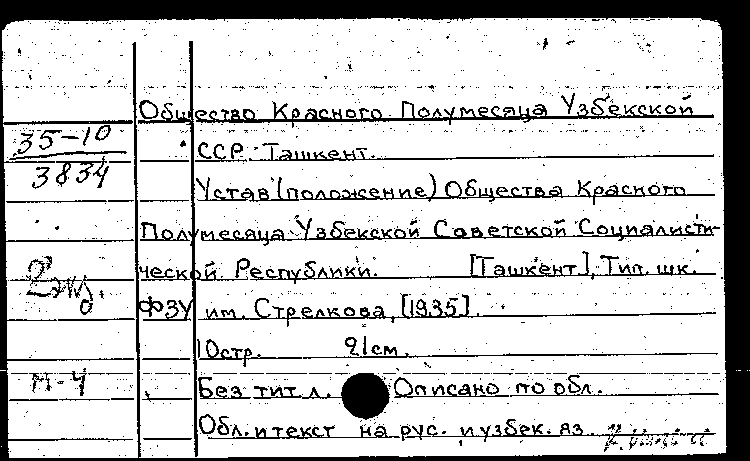 Общество Красного Полумесяца Узбекской
35-10
ССР. Ташкент.
3834
Устав (положение) Общества Красного
Полумесяца Узбекской Советской Социалисти-
ческой Республики. [Ташкент], Тип. шк.
2 экз.
ФЗУ им. Стрелкова, [1935].
10стр. 21см.
М-4
Без тит. л. Описано по обл.
Обл. и текст на рус. и узбек. яз.